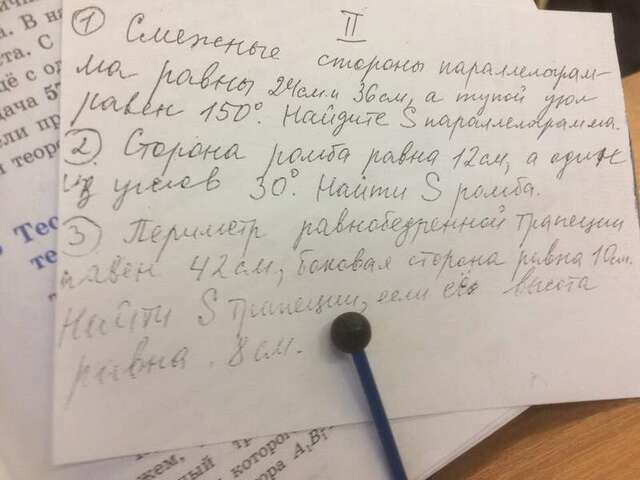 II
① Смежные стороны параллелограм-
ма равны 24см и 36см, а тупой угол
равен 150°. Найдите S параллелограмма.
② Сторона ромба равна 12см, а один
из углов 30°. Найти S ромба.
③ Периметр равнобедренной трапеции
равен 42см, боковая сторона равна 10см.
Найти S трапеции, если её высота
равна 8см.
В на
та. С
щё с од
дача 57
ли пр
теоре
Тео
те
которо
ора A₁B₁